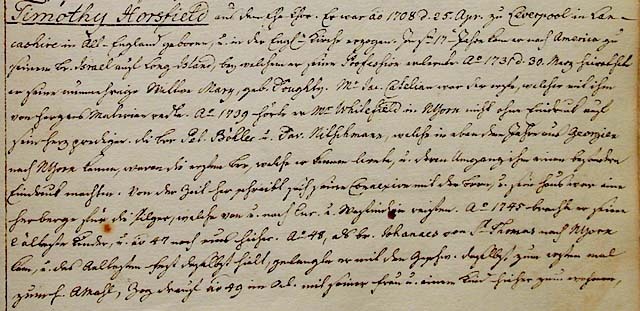 Timothy Horsfield aus dem Ehe Chor. Er war ao 1708 d. 25. Apr. zu Liverpool in Lan-
cashire in Alt-England geboren, u. in der Engl. Kirche erzogen. In sr. 17. Jahre kam er nach America zu
seinem Br. Israel auf Long Island bey welchem er seine Profession erlernte. Ao 1731 d. 30. Mart. heirathete
er seine nunmehrige Wittwe Mary, geb. Doughty. Mr. Jac. war der erste, welcher mit ihm
von Herzens Materien redte. Ao 1739 hörte er Mr. Whitefield in NYork nicht ohne Eindruck auf
sein Herz predigen. die Brr. Pet. Böhler u. Dav. Nitschmann, welche in eben dem Jahre aus Georgien
nach NYork kamen, waren die ersten Brr. welche er kennen lernte, u. deren Umgang ihm einen besondern
Eindruck machten. Von der Zeit her schreibt sich seine Connexion mit den Brrn. u. sein Haus war eine
Herberge für die Pilger, welche von u. nach Eur. u. Westindien reisten. Ao 1745 brachte er seine
2 älteste Kinder, u. ao 47 noch eins hieher. Ao 48, als br. Johannes von St. Thomas nach NYork
kam, u. das Aeltesten Fest daselbst hielt, gelangte er mit den Geschw. daselbst, zum ersten mal
zum h. Amahl, Zog drauf ao 49 im Oct. mit seiner Frau u. einem Kind hieher zum wohnen,